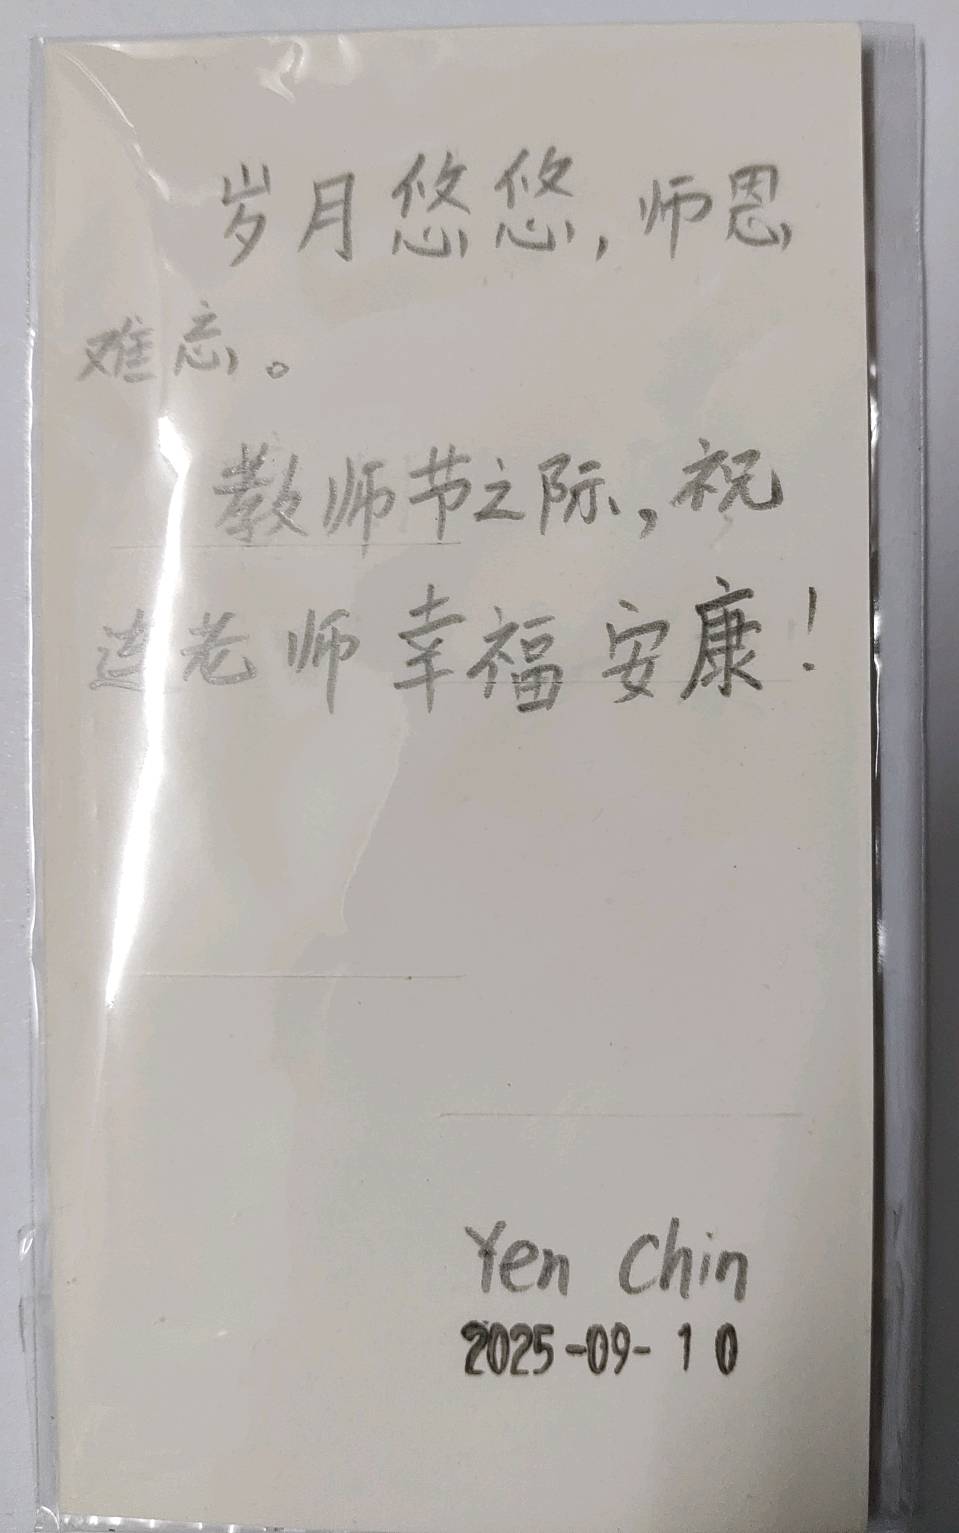 岁月悠悠,师恩
难忘。
教师节之际,祝
连老师幸福安康!
Yen Chin
2025-09-10